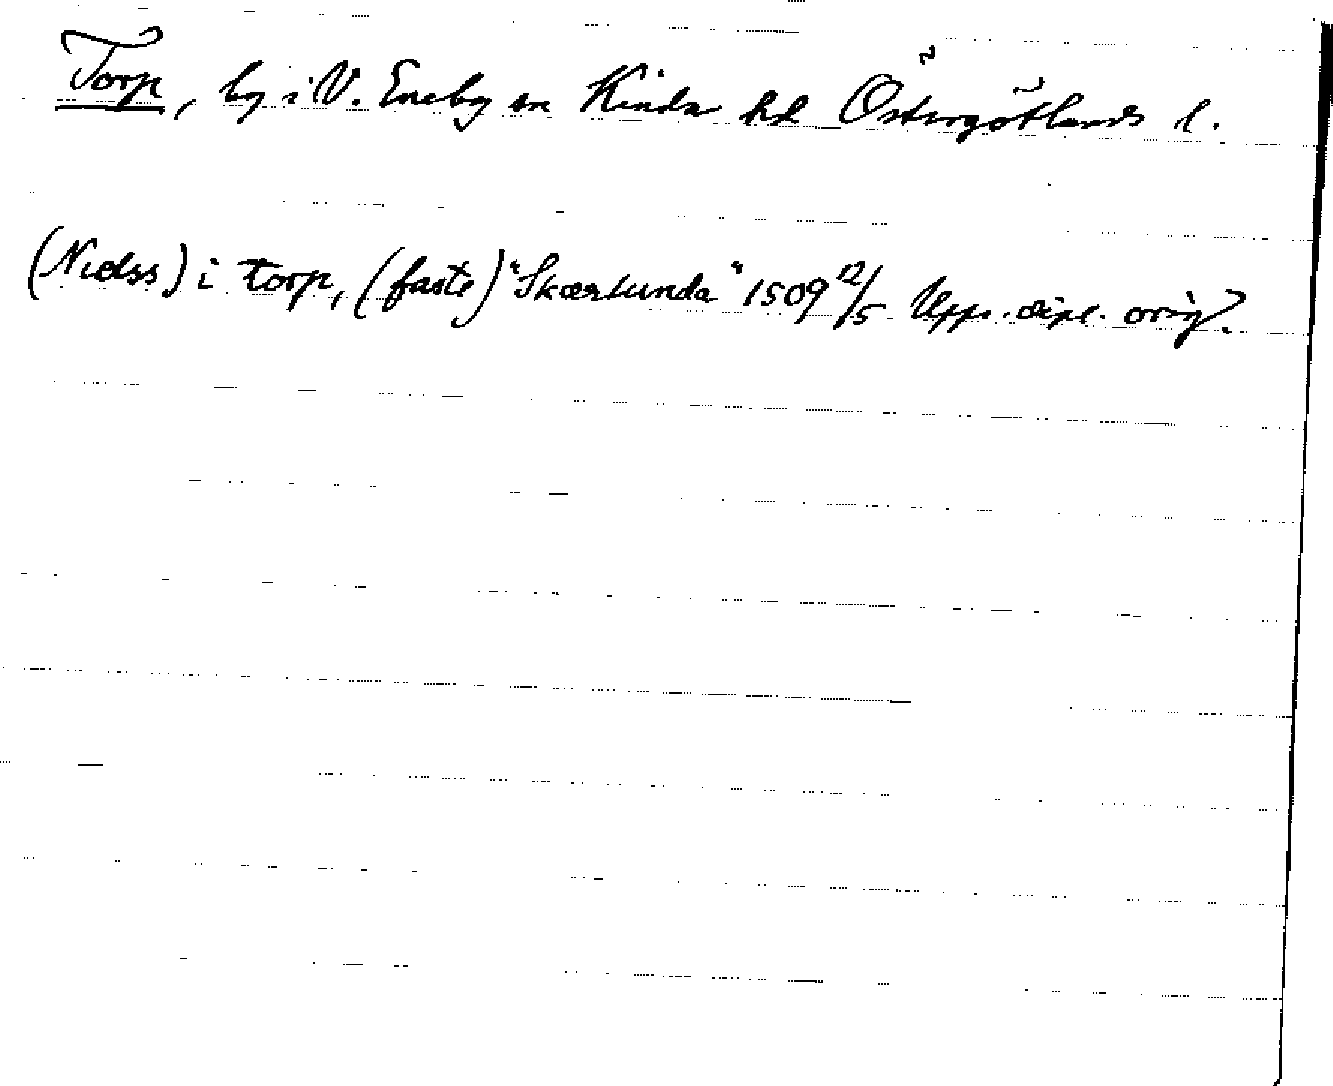 Torp, by i V. Eneby sn Kinda hd Östergötlands l.
(Nielss) i torp, (faste) "Skærkunda" 1509 12/5 Upps. dipl. orig?